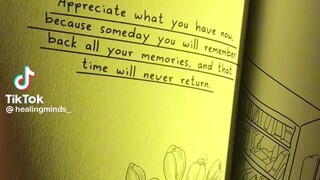 Appreciate what you have now,
because someday you will remember
back all your memories, and that
time will never return.
TikTok
@healingminds_